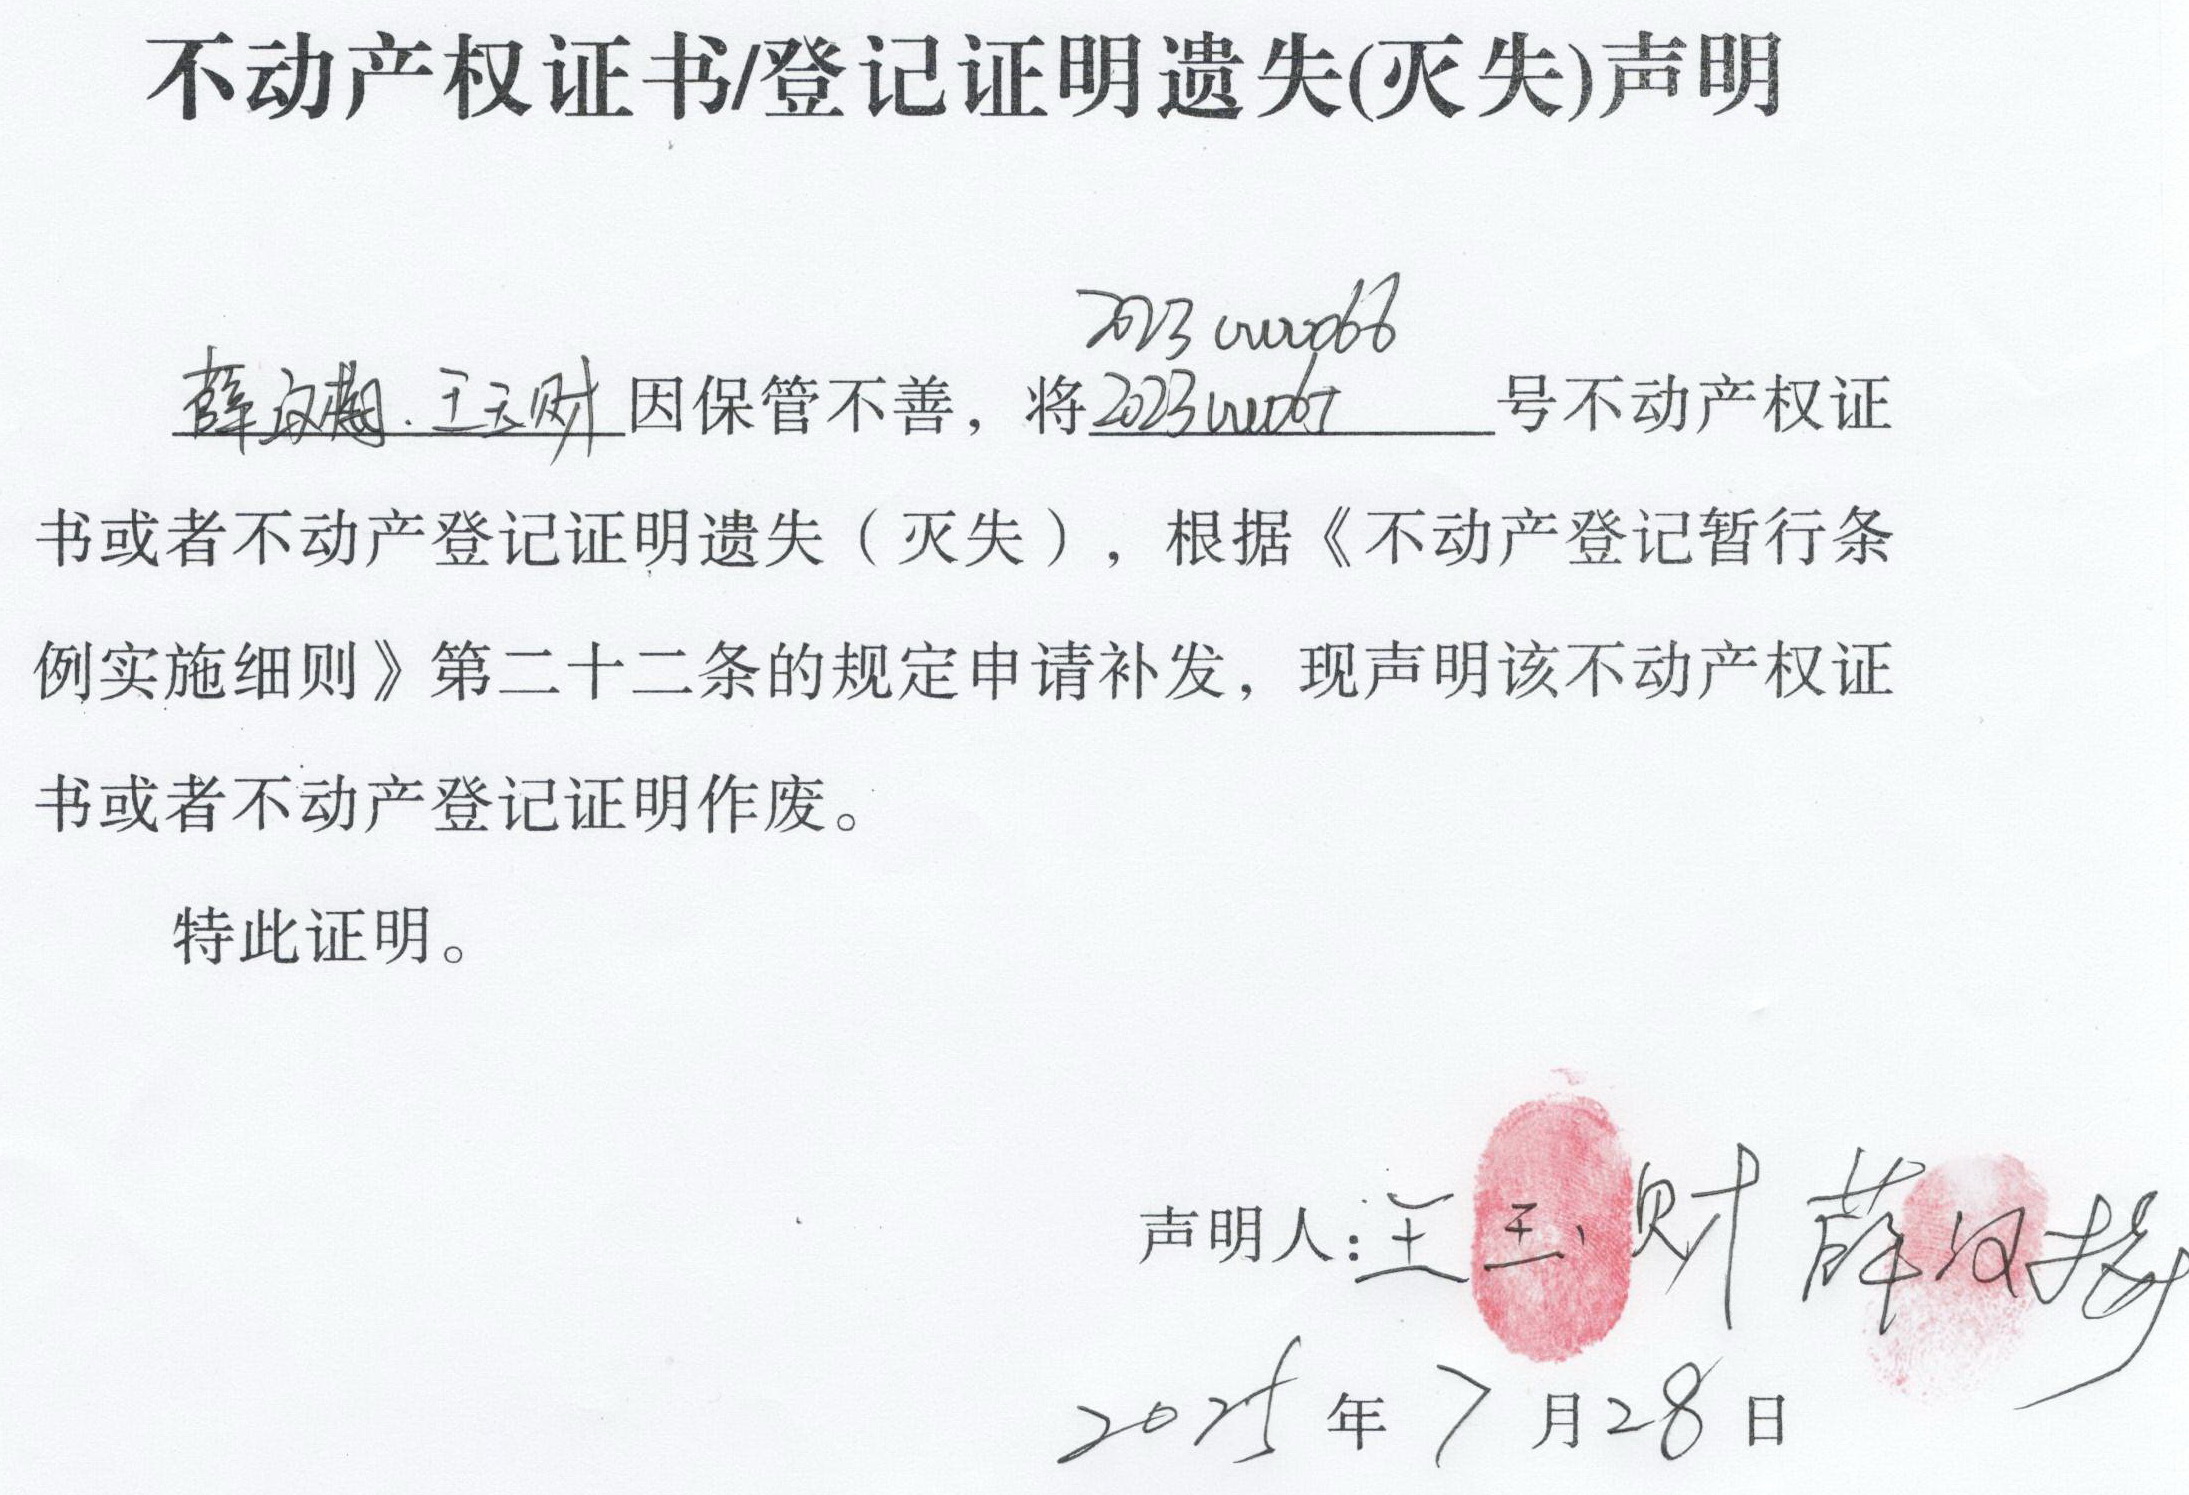 不动产权证书/登记证明遗失(灭失)声明
薛汉梅.王玉财因保管不善，将2023号不动产权证
书或者不动产登记证明遗失（灭失），根据《不动产登记暂行条
例实施细则》第二十二条的规定申请补发，现声明该不动产权证
书或者不动产登记证明作废。
特此证明。
声明人：王玉财 薛汉梅
2025年7月28日